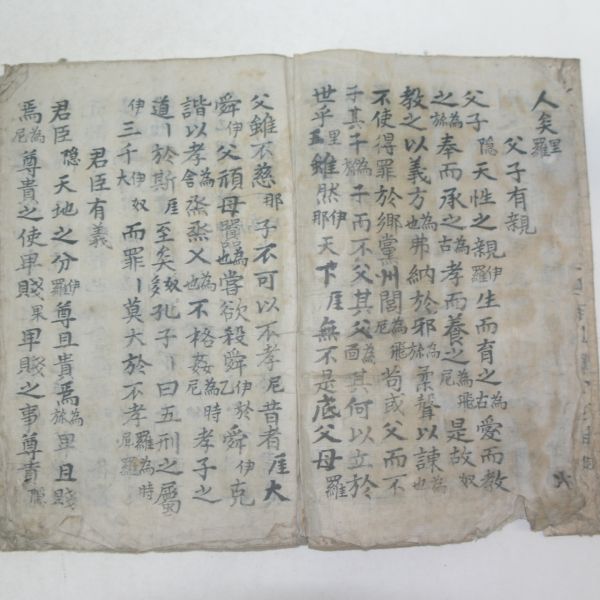 人矣里羅
父子有親
父子隐天性之親伊羅生而育之為古愛而教
之為旅奉而承之為古孝而養之為飛尼是故奴
教之以義方為也弗納於邪為旅柔聲以諫為也
不使得罪於鄉黨州閭為飛尼苟或父而不
子其子為子而不父其父為面其何以立於
世乎里五雖然伊那天下厓無不是底父母羅
父雖不慈那子不可以不孝尼昔者厓大
舜伊父頑母嚚為也嘗欲殺舜乙於舜伊克
諧以孝為舍烝烝乂為也不格姦為時孝子之
道丨於斯厓至矣奴多孔子丨曰五刑之屬
伊三千伊奴大而罪丨莫大於不孝羅為時羅
君臣有義
君臣隐天地之分伊羅尊且貴焉為旅卑且賤
焉為尼尊貴之使卑賤果卑賤之事尊貴隐